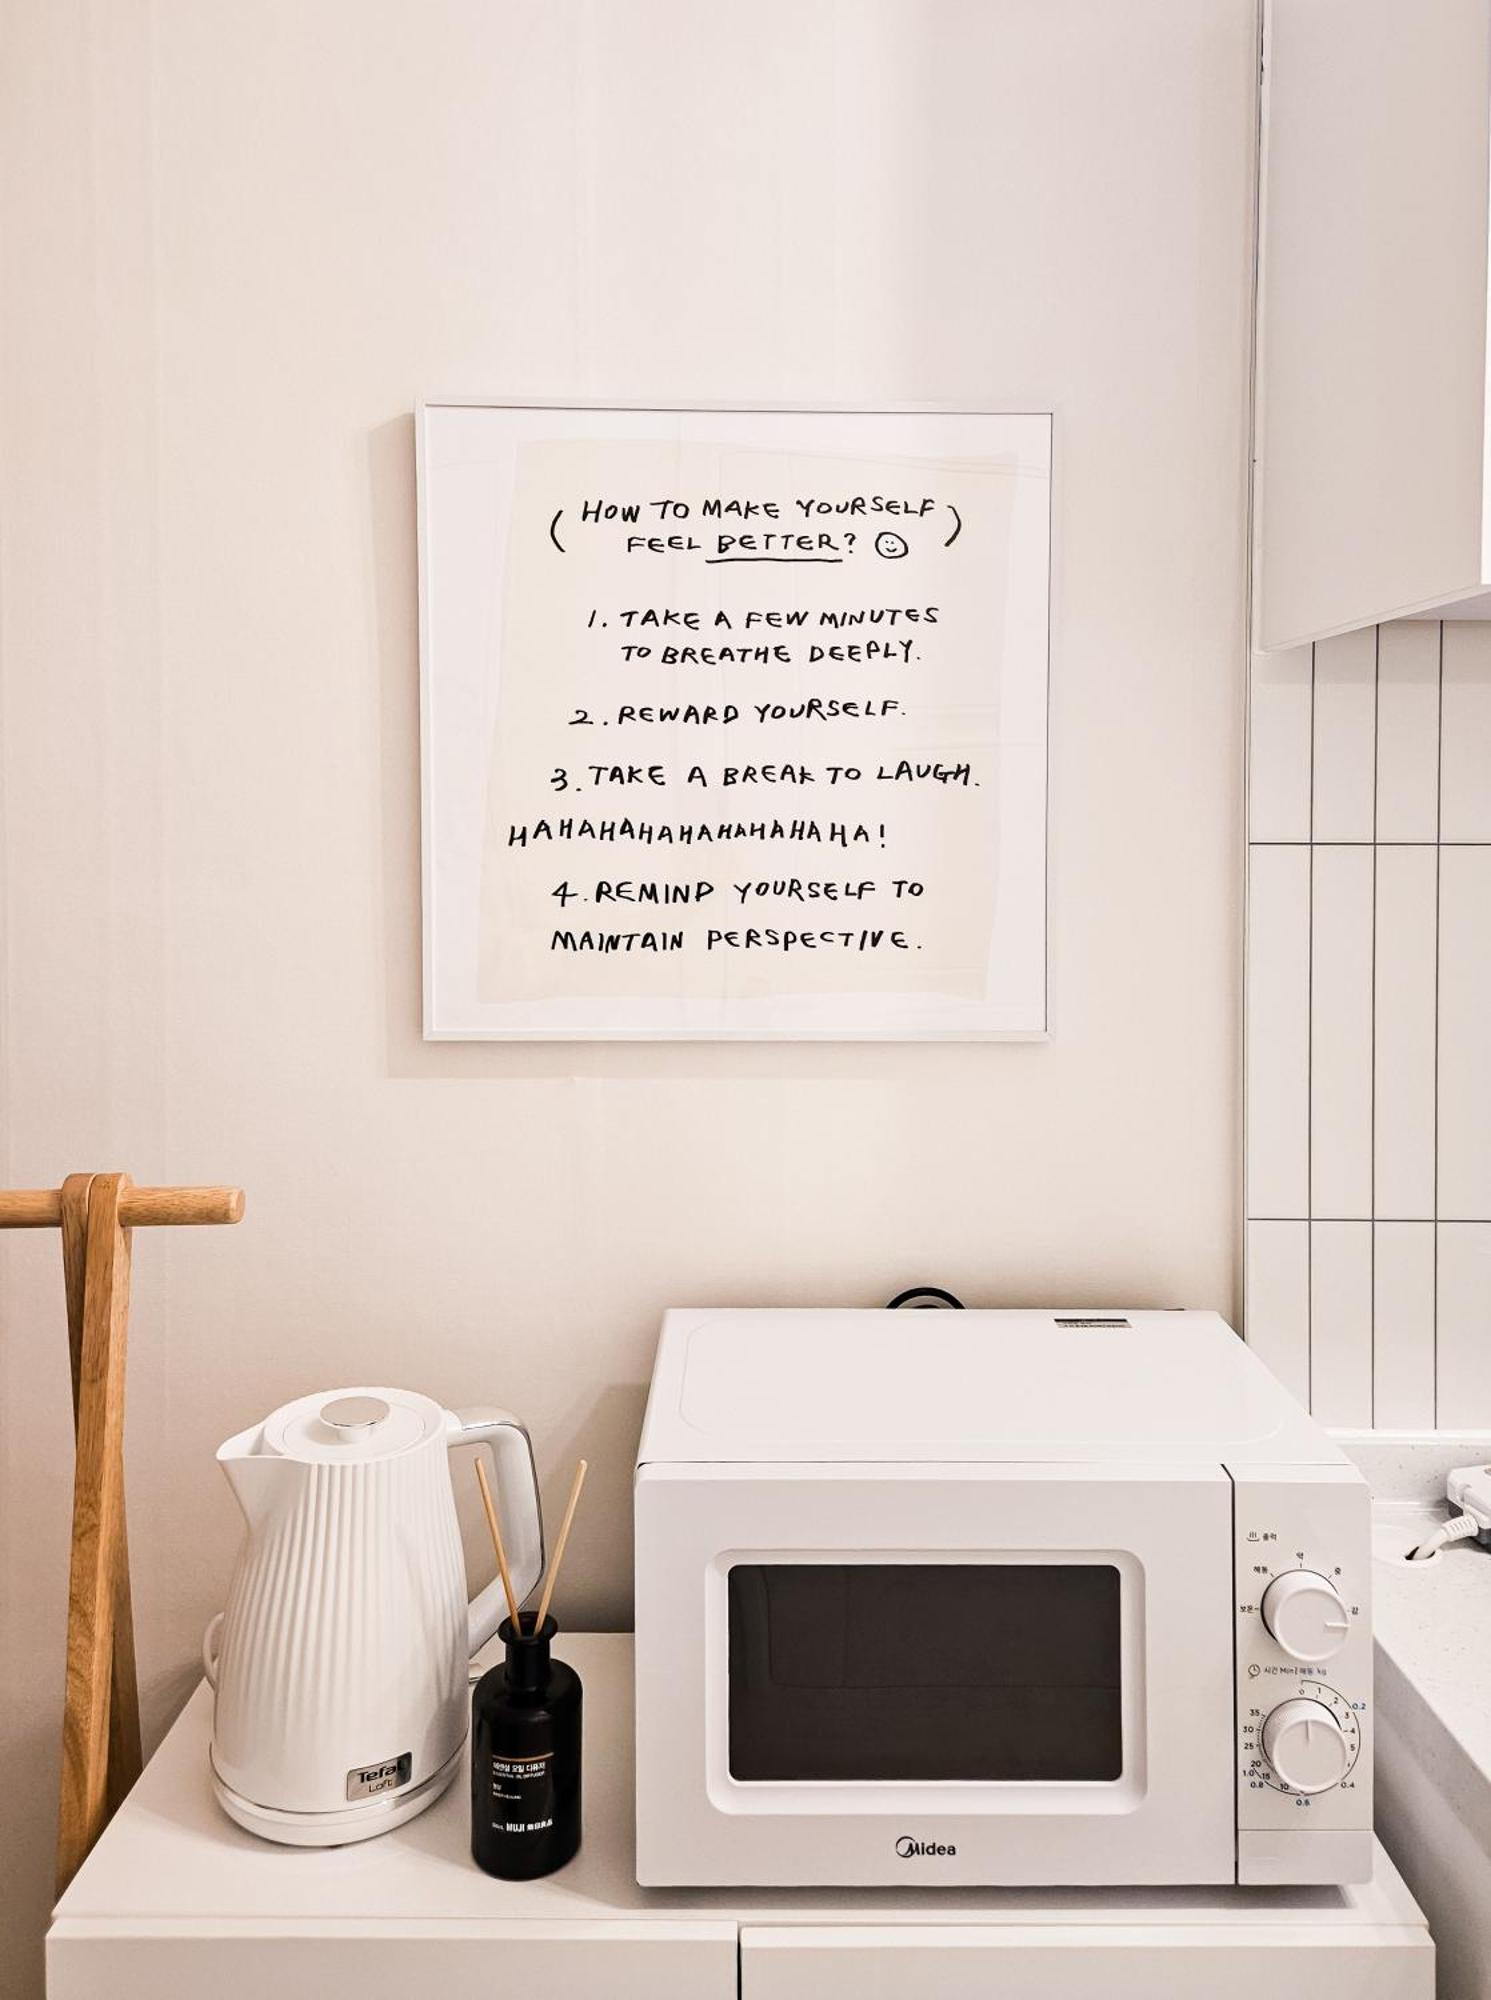 ( HOW TO MAKE YOURSELF
FEEL BETTER? ☺ )
1. TAKE A FEW MINUTES
TO BREATHE DEEPLY.
2. REWARD YOURSELF.
3. TAKE A BREAK TO LAUGH.
HAHAHAHAHAHAHAHAHA!
4. REMIND YOURSELF TO
MAINTAIN PERSPECTIVE.
Tefal
Loft
에센셜 오일 디퓨저
ESSENTIAL OIL DIFFUSER
MUJI 無印良品
Midea
출력
약
해동 중
보온 강
시간 Min | 해동 kg
0 1 2 0.2
35 3
30 4
25 5
20
1.0 15
0.8 10 0.4
0.6